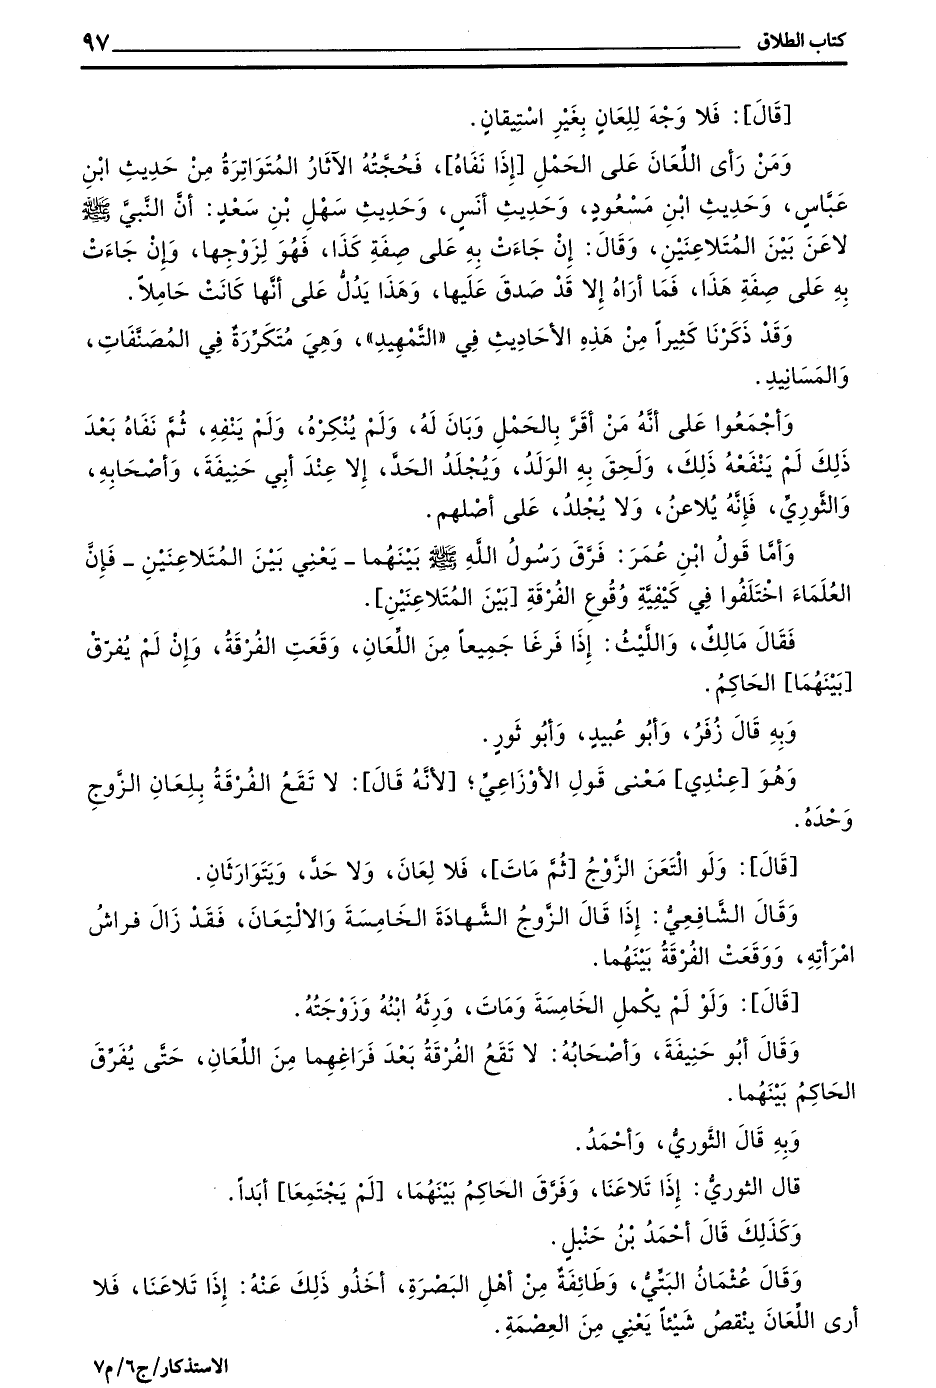 كتاب الطلاق ٩٧
[قَالَ]: فَلا وَجْهَ لِلِعَانِ بِغَيْرِ اسْتِيقانٍ.
وَمَنْ رَأى اللِّعَانَ عَلى الحَمْلِ [إِذَا نَفَاهُ]، فَحُجَّتُهُ الآثَارُ المُتَوَاتِرَةُ مِنْ حَدِيثِ ابْنِ
عَبَّاسٍ، وَحَدِيثِ ابْنِ مَسْعُودٍ، وَحَدِيثِ أنَسٍ، وَحَدِيثِ سَهْلِ بْنِ سَعْدٍ: أنَّ النَّبيَّ ﷺ
لاعَنَ بَيْنَ المُتَلاعِنَيْنِ، وَقَالَ: إنْ جَاءَتْ بِهِ عَلى صِفَةِ كَذَا، فَهُوَ لِزَوْجِها، وَإنْ جَاءَتْ
بِهِ عَلى صِفَةِ هَذَا، فَمَا أرَاهُ إلا قَدْ صَدقَ عَلَيها، وَهَذَا يَدُلُّ عَلى أنَّها كَانَتْ حَامِلاً.
وَقَدْ ذَكَرْنَا كَثِيراً مِنْ هَذِهِ الأحَادِيثِ فِي «التَّمْهِيدِ»، وَهِيَ مُتَكَرِّرَةٌ فِي المُصَنَّفَاتِ،
وَالمَسَانِيدِ.
وَأجْمَعُوا عَلى أنَّهُ مَنْ أقَرَّ بِالحَمْلِ وَبَانَ لَهُ، وَلَمْ يُنْكِرْهُ، وَلَمْ يَنْفِهِ، ثُمَّ نَفَاهُ بَعْدَ
ذَلِكَ لَمْ يَنْفَعْهُ ذَلِكَ، وَلَحِقَ بِهِ الوَلَدُ، وَيُجْلَدُ الحَدَّ، إلا عِنْدَ أبي حَنِيفَةَ، وَأصْحَابِهِ،
وَالثَّورِيِّ، فَإنَّهُ يُلاعنُ، وَلا يُجْلدُ، عَلى أصْلهم.
وَأمَّا قَولُ ابْنِ عُمَرَ: فَرَّقَ رَسُولُ اللَّهِ ﷺ بَيْنَهُما ـ يَعْنِي بَيْنَ المُتَلاعِنَيْنِ ـ فَإنَّ
العُلَمَاءَ اخْتَلَفُوا فِي كَيْفِيَّةِ وُقُوعِ الفُرْقَةِ [بَيْنَ المُتَلاعِنَيْنِ].
فَقَالَ مَالِكٌ، وَاللَّيْثُ: إذَا فَرغَا جَمِيعاً مِنَ اللِّعَانِ، وَقَعَتِ الفُرْقَةُ، وَإنْ لَمْ يُفرّقْ
[بَيْنَهُمَا] الحَاكِمُ.
وَبِهِ قَالَ زُفَرُ، وَأبُو عُبيدٍ، وَأبُو ثَورٍ.
وَهُوَ [عِنْدِي] مَعْنى قَولِ الأوْزَاعِيِّ؛ [لأنَّهُ قَالَ]: لا تَقَعُ الفُرْقَةُ بِلِعَانِ الزَّوجِ
وَحْدَهُ.
[قَالَ]: وَلَو الْتَعَنَ الزَّوْجُ [ثُمَّ مَاتَ]، فَلا لِعَانَ، وَلا حَدَّ، وَيَتَوَارَثَانِ.
وَقَالَ الشَّافِعِيُّ: إذَا قَالَ الزَّوجُ الشَّهادَةَ الخَامِسَةَ وَالالْتِعَانَ، فَقَدْ زَالَ فراشُ
امْرَأتِهِ، وَوَقَعَتْ الفُرْقَةُ بَيْنَهُما.
[قَالَ]: وَلَوْ لَمْ يكْملِ الخَامِسَةَ وَمَاتَ، وَرِثَهُ ابْنُهُ وَزَوْجَتُهُ.
وَقَالَ أبُو حَنِيفَةَ، وَأصْحَابُهُ: لا تَقَعُ الفُرْقَةُ بَعْدَ فَرَاغِهِما مِنَ اللِّعَانِ، حَتَّى يُفَرِّقَ
الحَاكِمُ بَيْنَهُما.
وَبِهِ قَالَ الثَّوريُّ، وَأحْمَدُ.
قال الثوريُّ: إذَا تَلاعَنَا، وَفَرَّقَ الحَاكِمُ بَيْنَهُمَا، [لَمْ يَجْتَمِعَا] أبَداً.
وَكَذَلِكَ قَالَ أحْمَدُ بْنُ حَنْبلٍ.
وَقَالَ عُثْمَانُ البَتِّيُّ، وَطَائِفَةٌ مِنْ أهْلِ البَصْرَةِ، أخَذُو ذَلِكَ عَنْهُ: إذَا تَلاعَنَا، فَلا
أرى اللِّعَانَ ينْقصُ شَيْئاً يَعْنِي مِنَ العِصْمَةِ.
الاستذكار/ج٦/م٧